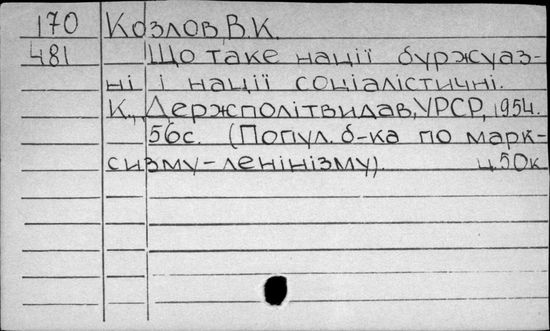 170 Козлов, В.К.
481 Що таке нації буржуаз-
ні і нації соціалістичні.
К., Держполітвидав, УРСР, 1954.
56с. (Попул. б-ка по марк-
сизму-ленінізму). ц. 50к